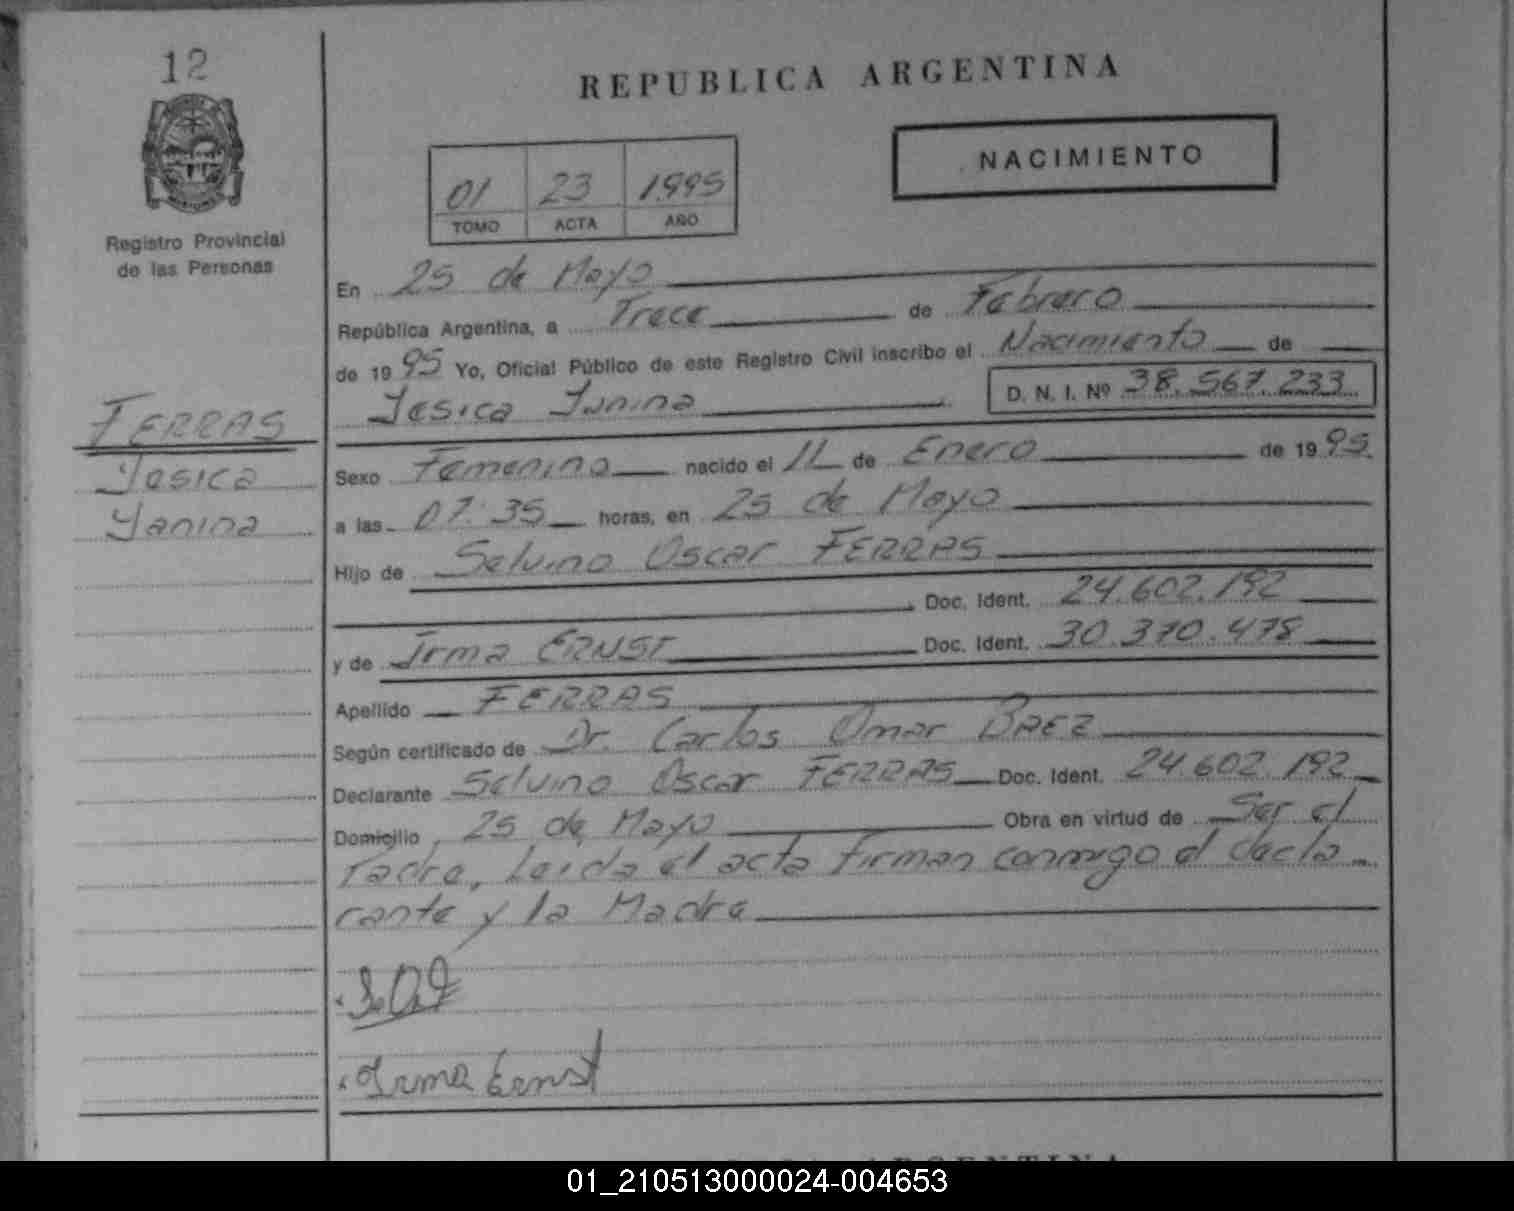 12
REPUBLICA ARGENTINA
NACIMIENTO
01 23 1995
TOMO ACTA AÑO
Registro Provincial
de las Personas
En 25 de Mayo
República Argentina, a Trece de Febrero
de 1995 Yo, Oficial Público de este Registro Civil inscribo el Nacimiento de
Yesica Yanina D. N. I. Nº 38.567.233
FERRAS
Yesica
Yanina
Sexo Femenino nacido el 11 de Enero de 1995.
a las 07:35 horas, en 25 de Mayo
Hijo de Selvino Oscar FERRAS
Doc. Ident. 24.602.192
y de Irma ERNST Doc. Ident. 30.370.478
Apellido FERRAS
Según certificado de Dr. Carlos Omar BAEZ
Declarante Selvino Oscar FERRAS Doc. Ident. 24.602.192
Domicilio 25 de Mayo Obra en virtud de Ser el
Padre, Leida el acta firman conmigo el decla
rante y la Madre
Irma Ernst
01_210513000024-004653